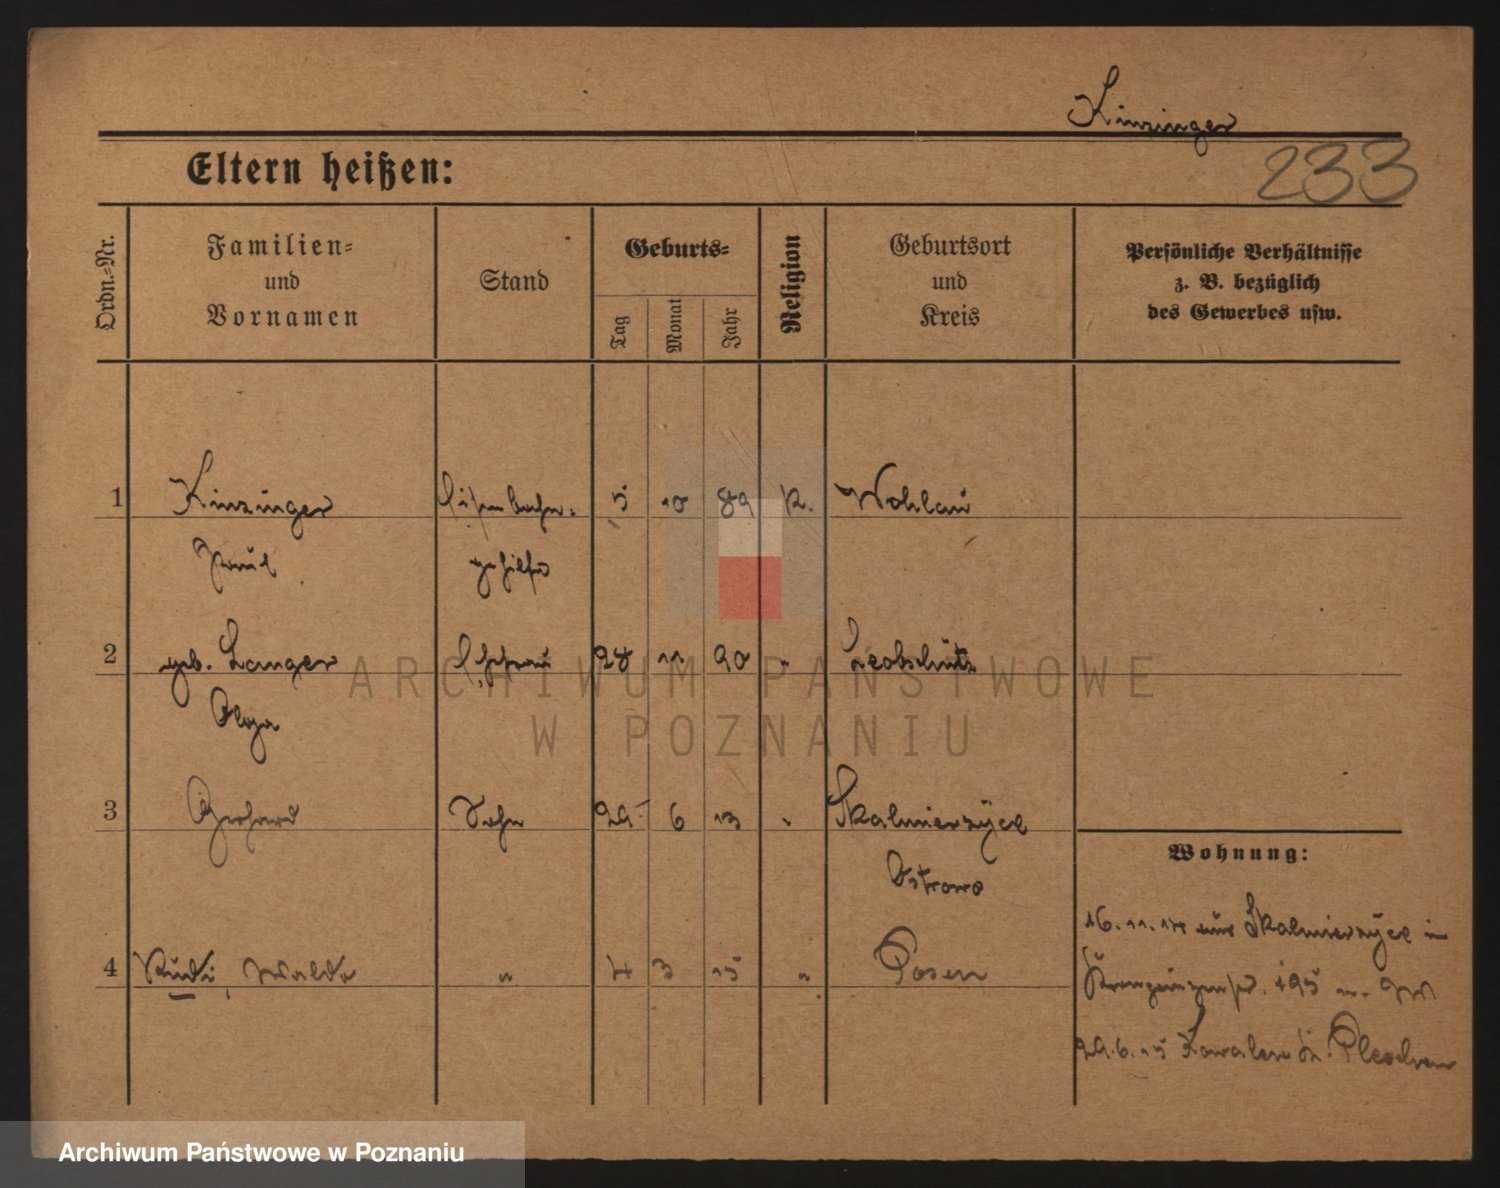 Kinzinger
233
Eltern heißen:
Ordn.-Nr.
Familien-
und
Vornamen
Stand
Geburts-
Tag
Monat
Jahr
Religion
Geburtsort
und
Kreis
Persönliche Verhältnisse
z. B. bezüglich
des Gewerbes usw.
1 Kinzinger Eisenbahn- 5 10 89 K. Wohlau
Paul gehilfe
2 geb. Langer Ehefrau 28 11 90 " Leobschütz
Olga
3 Gerhard Sohn 29 6 13 " Skalmierzyce
Ostrowo
Wohnung:
16. 11. 14 aus Skalmierzyce in
4 Rudi, Waldr " 4 3 15 " Posen
Kronprinzenstr. 195
29. 6. 15 Kowalew Kr. Pleschen
ARCHIWUM PAŃSTWOWE
W POZNANIU
Archiwum Państwowe w Poznaniu